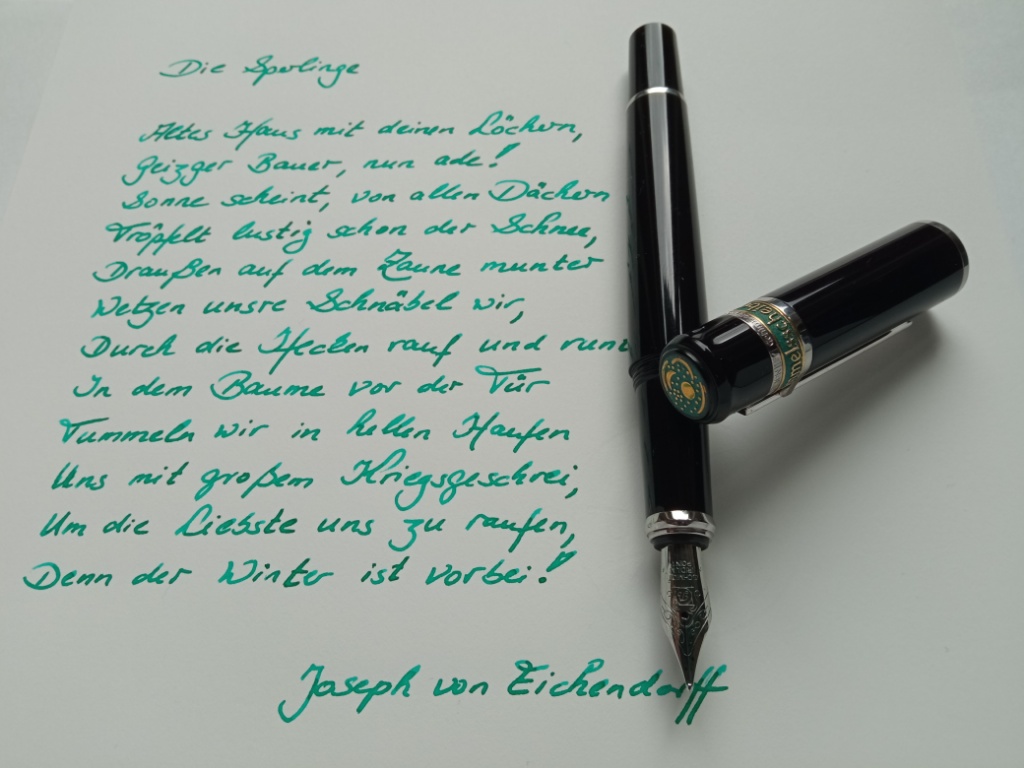 Die Sperlinge
Altes Haus mit deinen Löchern,
Geizger Bauer, nun ade!
Sonne scheint, von allen Dächern
Tröpfelt lustig schon der Schnee,
Draußen auf dem Zaune munter
Wetzen unsre Schnäbel wir,
Durch die Hecken rauf und runt
In dem Baume vor der Tür
Tummeln wir in hellen Haufen
Uns mit großem Kriegsgeschrei,
Um die Liebste uns zu raufen,
Denn der Winter ist vorbei!
Joseph von Eichendorff